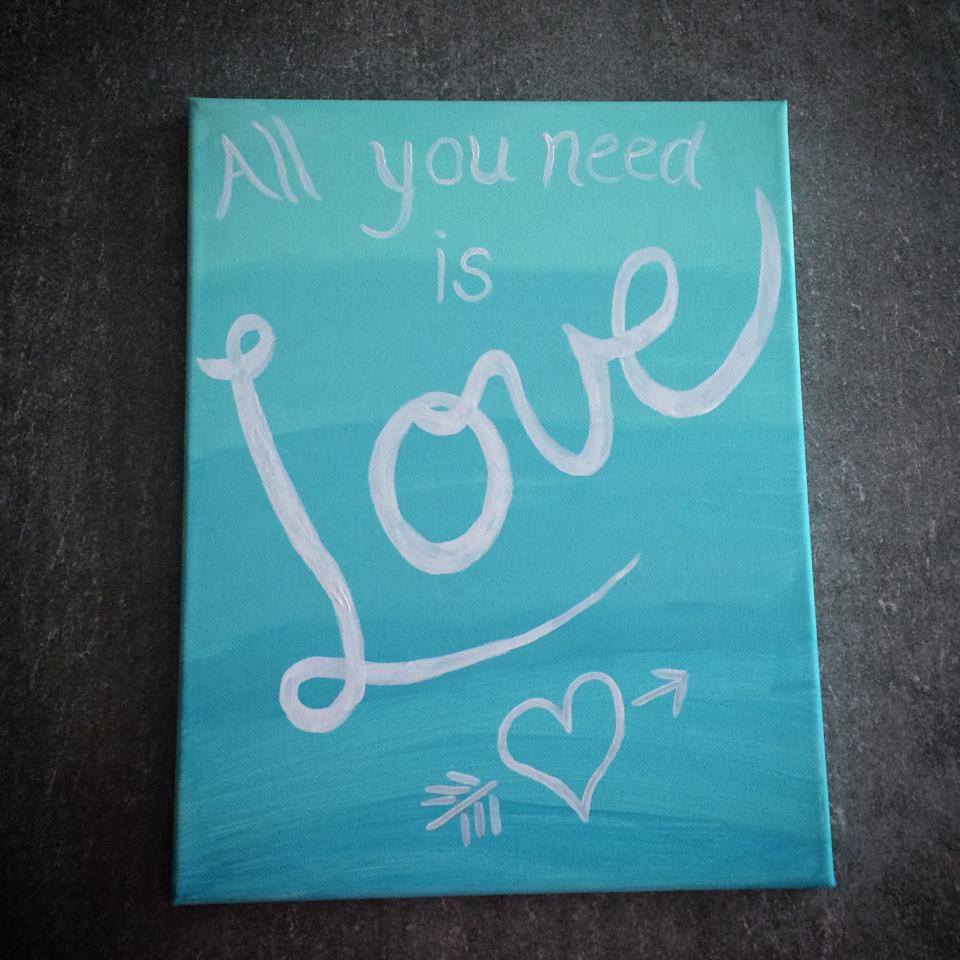 All you need
is
Love